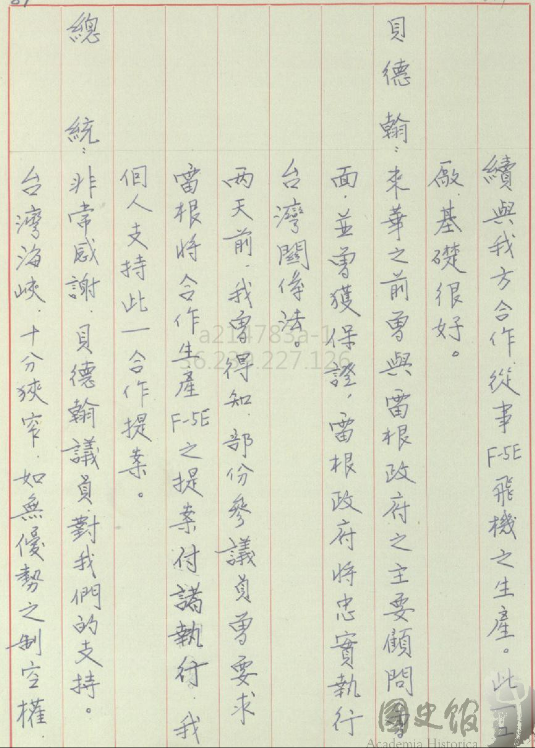 續與我方合作，從事F-5E飛機之生產。此工
廠基礎很好。
貝德翰：來華之前曾與雷根政府之主要顧問
面，並曾獲保證，雷根政府將忠實執行
台灣關係法
兩天前，我曾得知，部份參議員曾要求
雷根將合作生產F-5E之提案付諸執行，我
個人支持此一合作提案。
總 統：非常感謝，貝德翰議員對我們的支持。
台灣海峽，十分狹窄，如無優勢之制空權，
a214783a-1
36.227.126
國史館
Academia Historica